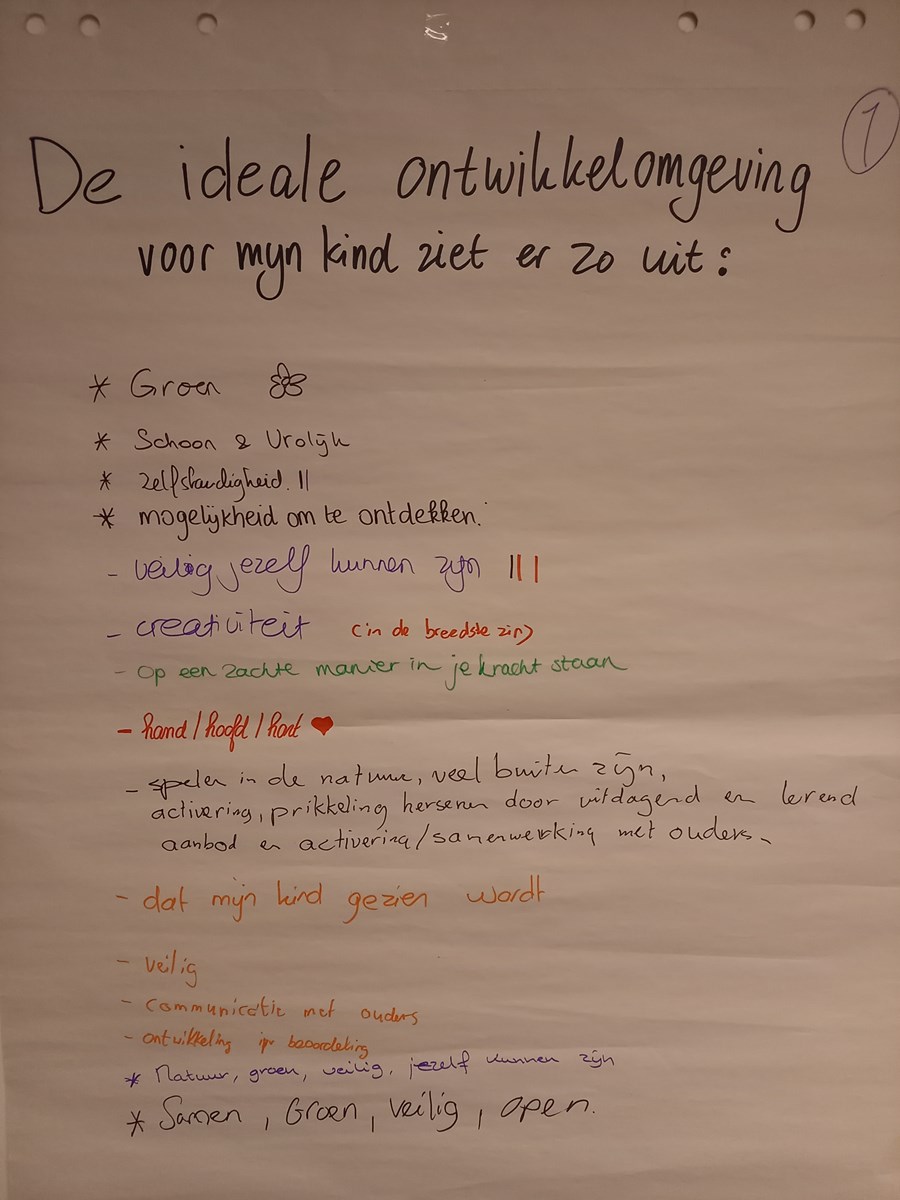 1
De ideale ontwikkelomgeving
voor mijn kind ziet er zo uit:
* Groen
* Schoon & Vrolijk
* zelfstandigheid. ||
* mogelijkheid om te ontdekken.
- veilig jezelf kunnen zijn |||
- creativiteit (in de breedste zin)
- op een zachte manier in je kracht staan
- hand/hoofd/hart ♥
- spelen in de natuur, veel buiten zijn,
activering, prikkeling hersenen door uitdagend en lerend
aanbod en activering/samenwerking met ouders.
- dat mijn kind gezien wordt
- veilig
- communicatie met ouders
- ontwikkeling ipv beoordeling
* Natuur, groen, veilig, jezelf kunnen zijn
* Samen, Groen, veilig, open.